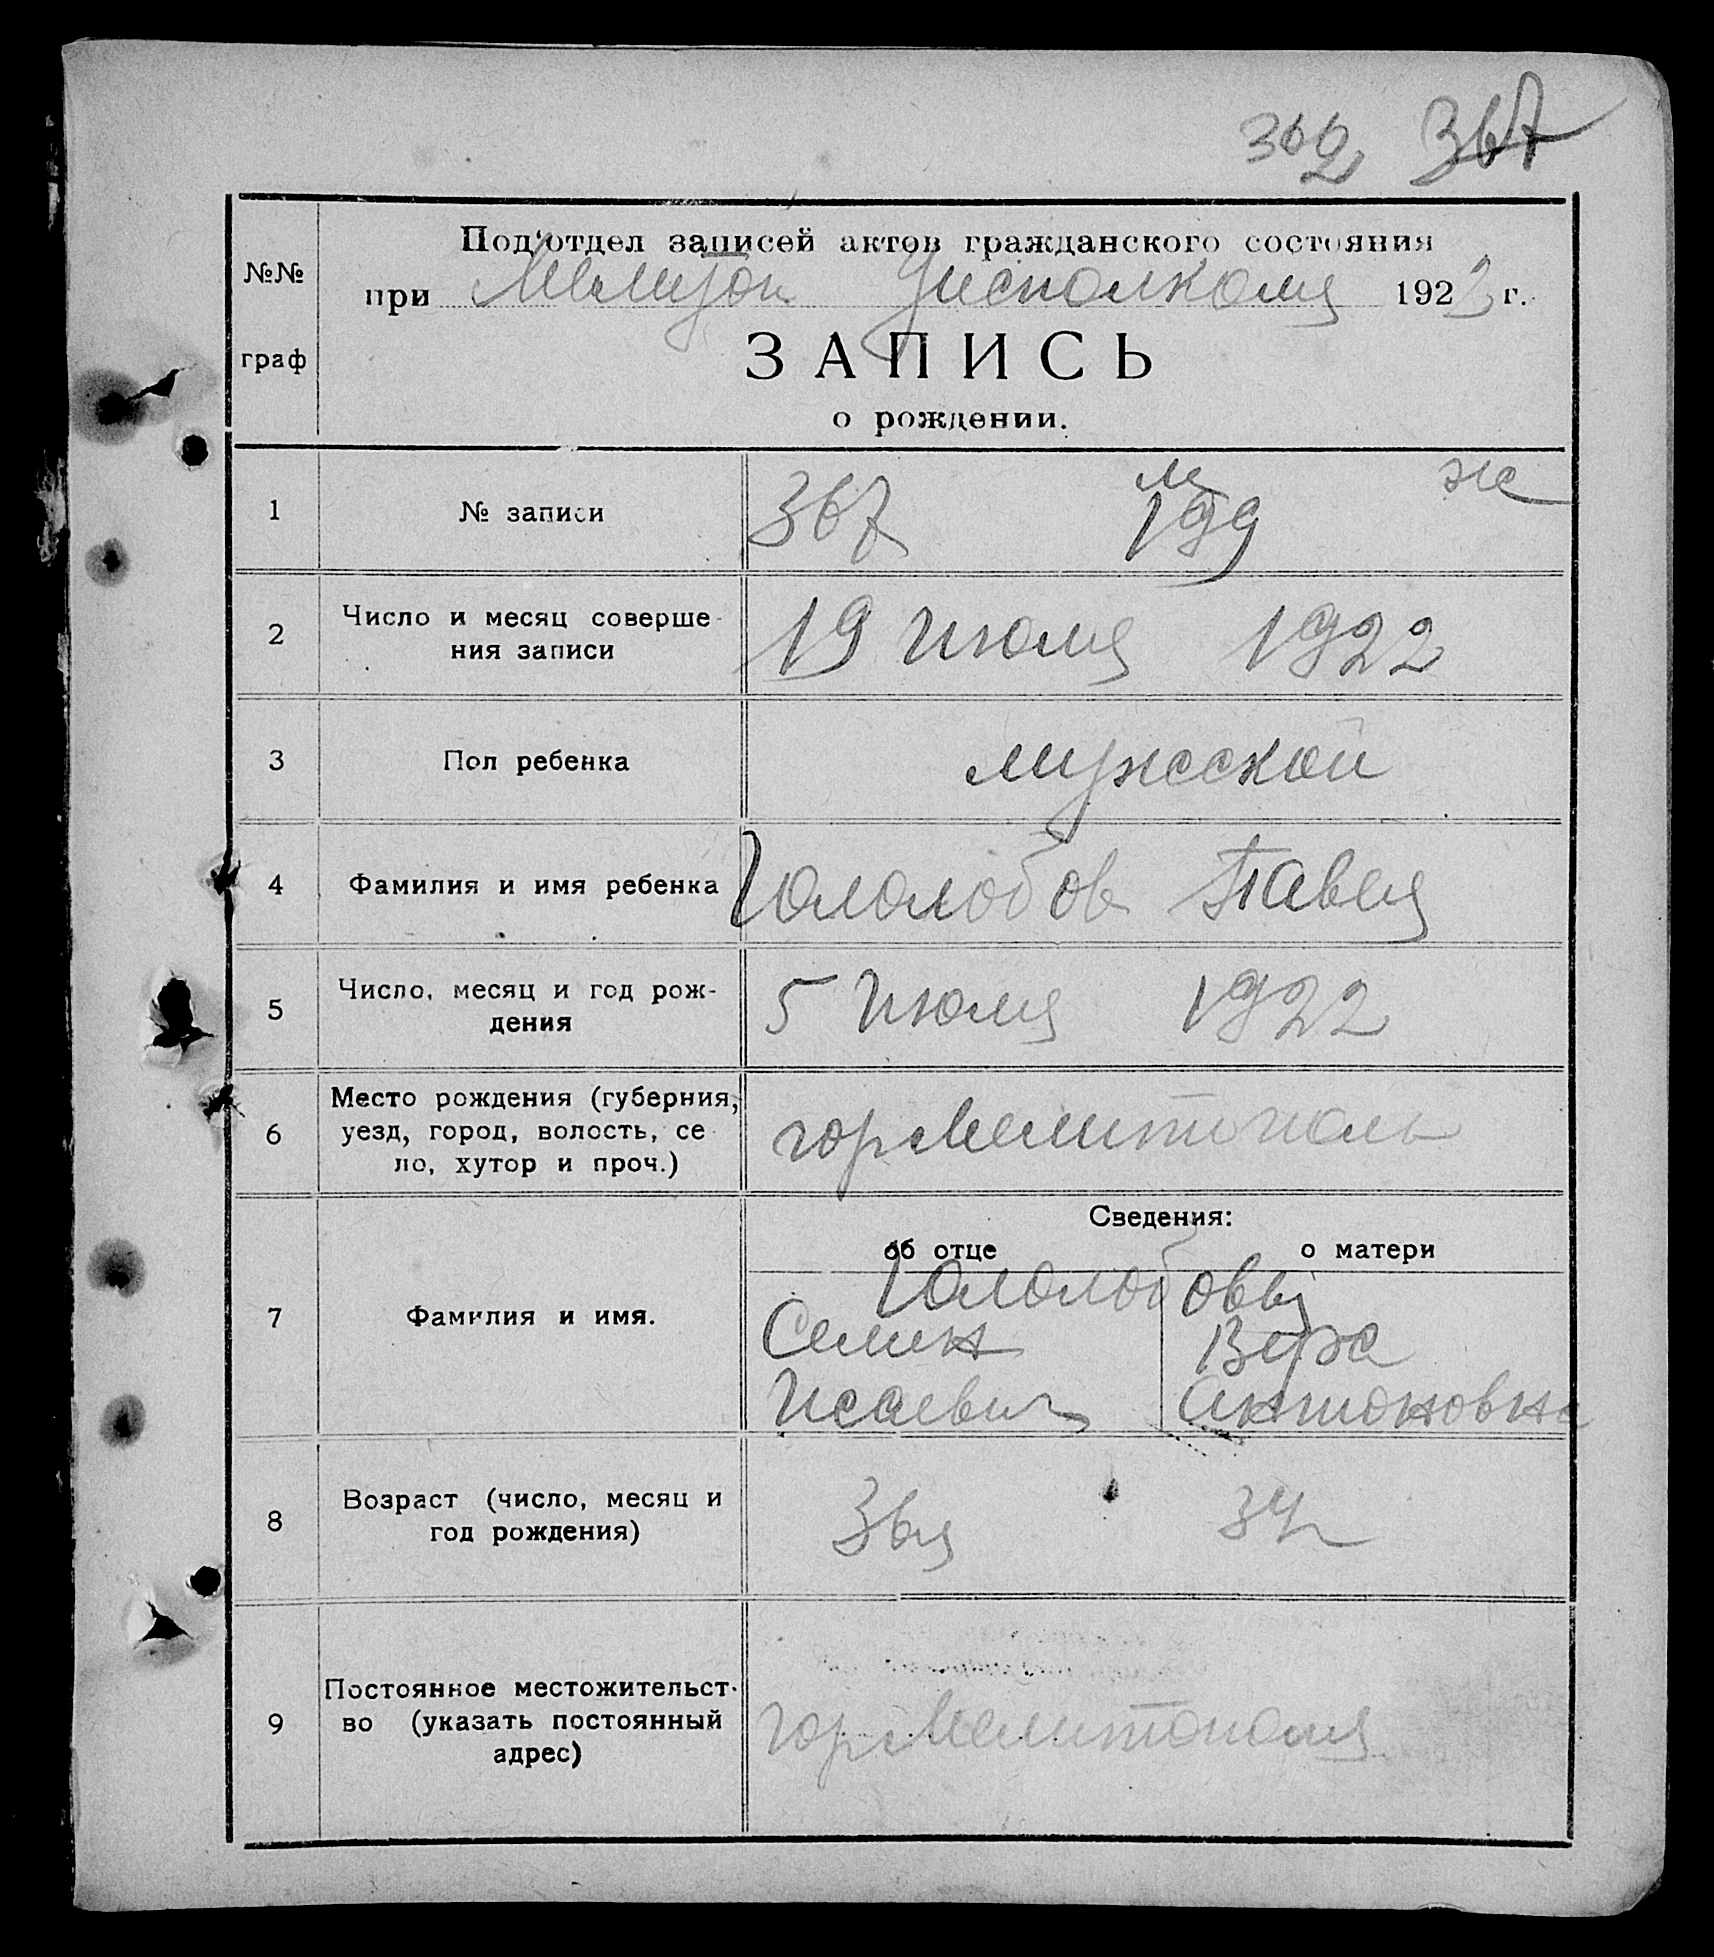 362 367
№№ граф
Под'отдел записей актов гражданского состояния
при Мелитоп Уисполкома 1922 г.
ЗАПИСЬ
о рождении.
1 № записи 367 м 199 ж
2 Число и месяц соверше-
ния записи 19 июля 1922
3 Пол ребенка мужской
4 Фамилия и имя ребенка Гололобов Павел
5 Число, месяц и год рож-
дения 5 июля 1922
6 Место рождения (губерния,
уезд, город, волость, се-
ло, хутор и проч.) гор Мелитополь
Сведения:
об отце о матери
7 Фамилия и имя. Гололобовы
Семен Вера
Исаевич Антоновна
8 Возраст (число, месяц и
год рождения) 36л 34
9 Постоянное местожительст-
во (указать постоянный
адрес) гор Мелитополь